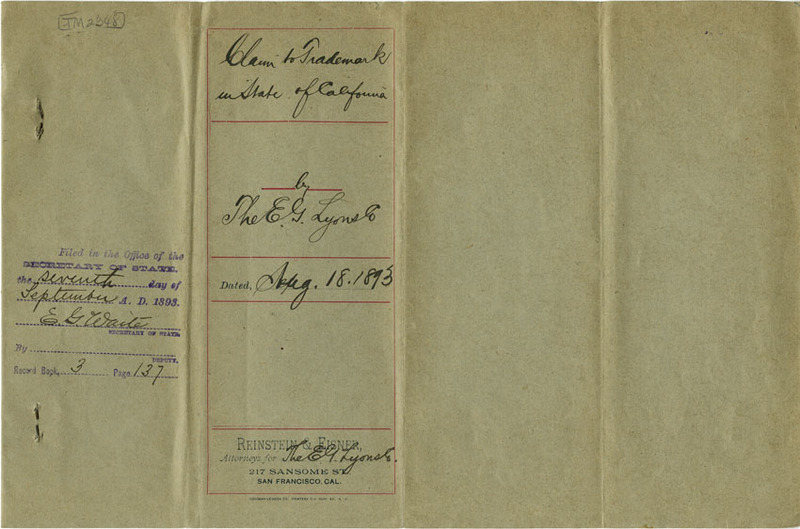 TM2348
Filed in the Office of the
SECRETARY OF STATE,
the seventh day of
September A. D. 1893.
E. G. Waite
SECRETARY OF STATE.
By
DEPUTY.
Record Book, 3 Page 137
Claim to Trademark
in State of California
by
The E. G. Lyons Co
Dated, Aug. 18. 1893
REINSTEIN & EISNER,
Attorneys for The E. G. Lyons Co.
217 SANSOME ST.
SAN FRANCISCO, CAL.